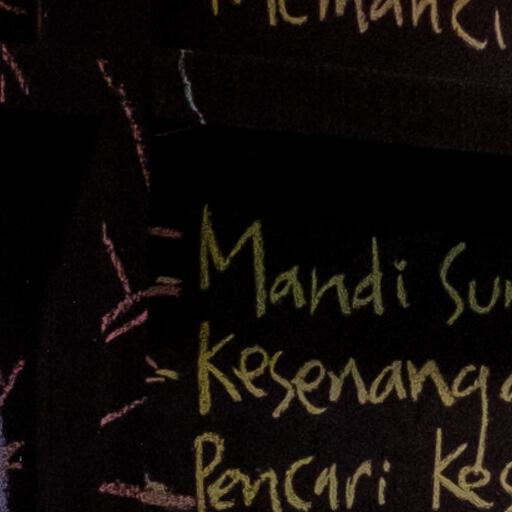 Memanci
Mandi Sun
Kesenanga
Pencari Kes